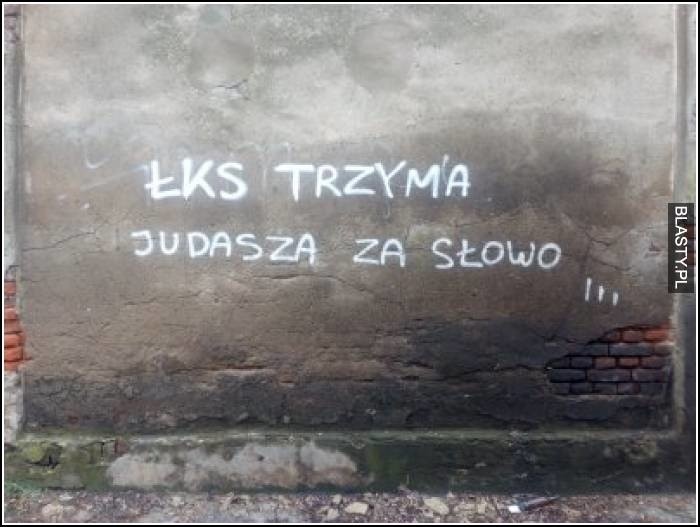 ŁKS TRZYMA
JUDASZA ZA SŁOWO
...
BLASTY.PL